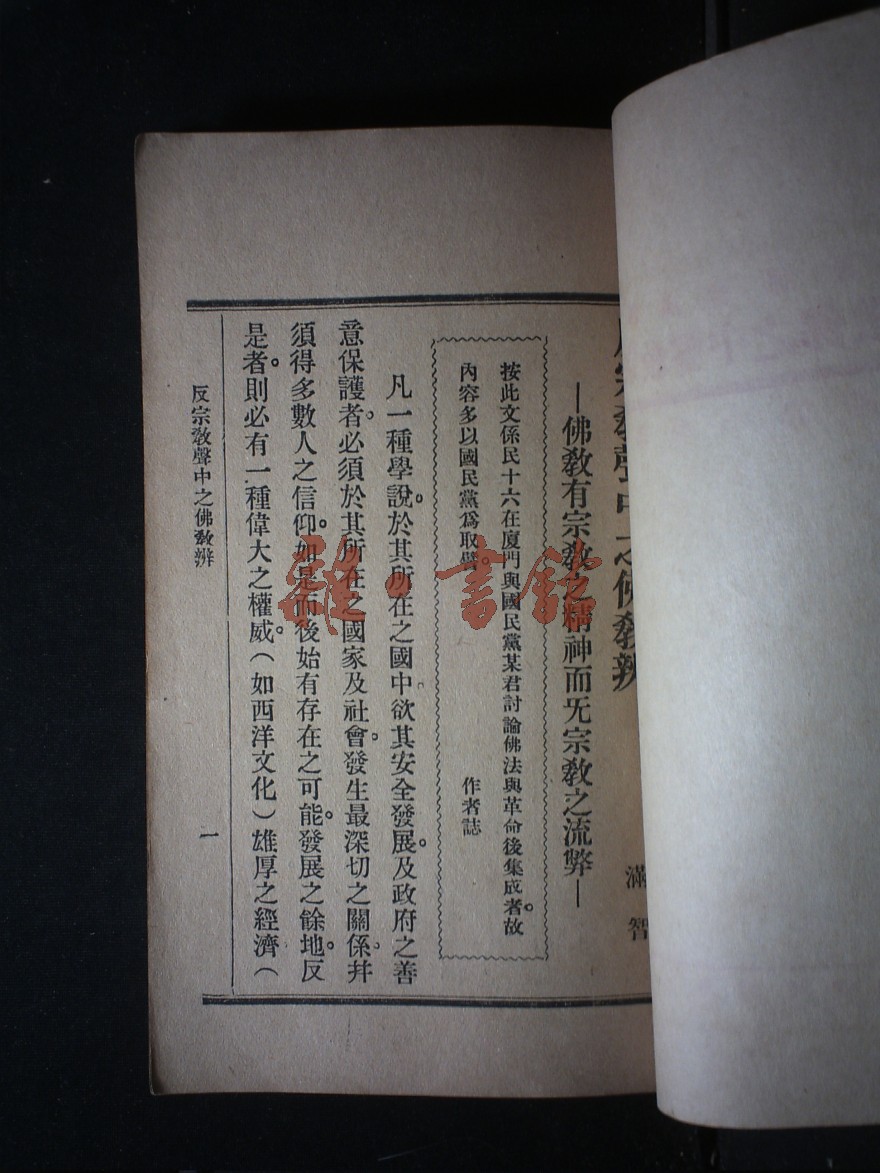 反宗教聲中之佛敎辨
滿智
—佛敎有宗敎之精神而旡宗敎之流弊—
按此文係民十六在廈門與國民黨某君討論佛法與革命後集成者。故
內容多以國民黨爲取譬。
作者誌
凡一種學說。於其所在之國中欲其安全發展。及政府之善
意保護者。必須於其所在之國家及社會。發生最深切之關係。幷
須得多數人之信仰。如是而後始有存在之可能。發展之餘地。反
是者。則必有一種偉大之權威。(如西洋文化)雄厚之經濟(
反宗敎聲中之佛敎辨
一
雜·書館